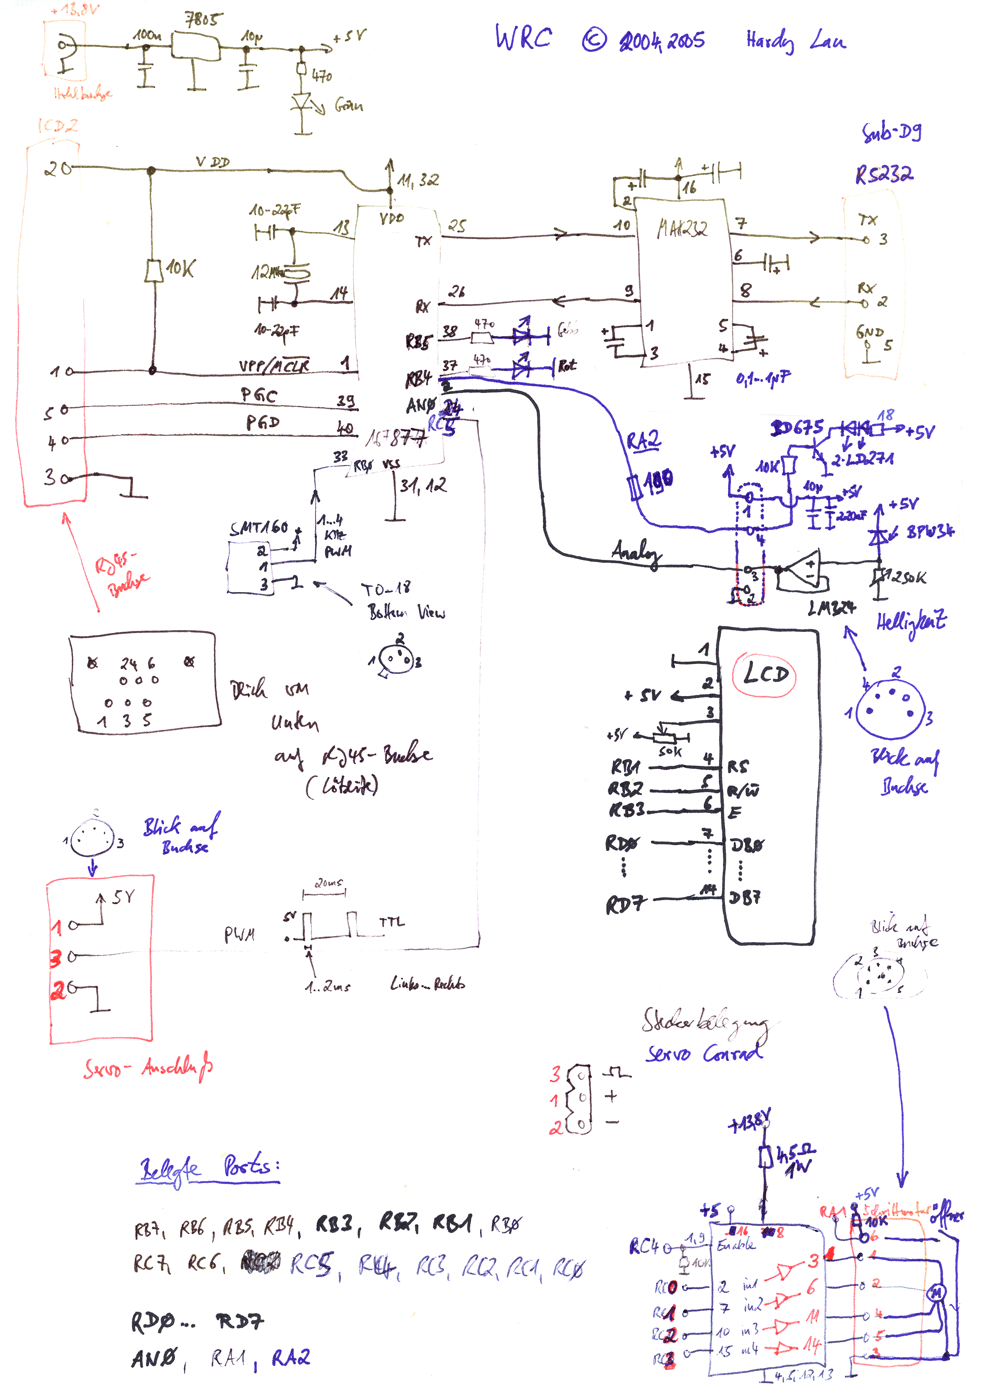 +13,8V
7805
100n
10µ
+5V
470
Grün
Hohlbuchse
WRC © 2004,2005 Hardy Lau
ICD2
Sub-D9
RS232
2
VDD
11, 32
VDD
16
+
+
2
10-22pF
13
TX
25
10
MAX232
7
TX
3
10K
12MHz
6
+
14
RX
26
9
8
RX
2
10-22pF
RB5
38
470
Gelb
+
1
3
5
4
+
GND
5
1
VPP/MCLR
1
RB4
37
470
Rot
15
0,1...1µF
PGC
39
AN0
2
5
RC5
4
PGD
40
16F877
3
33
RB0
VSS
31, 12
RA2
100
BD675
18
+5V
+5V
10K
2·LD271
10µ
+5V
220nF
1
4
+5V
BPW34
SMT160
2
+
1
3
1...4
KHz
PWM
Analog
3
2
+
-
LM324
250K
Helligkeit
RJ45-
Buchse
TO-18
Bottom View
2
1
3
2 4 6
1 3 5
Blick von
Unten
auf RJ45-Buchse
(Lötseite)
LCD
1
+5V
2
3
+5V
50K
RB1
4
RS
RB2
5
R/W
RB3
6
E
RD0
7
DB0
RD7
14
DB7
4
2
1
3
Blick auf
Buchse
1
3
Blick auf
Buchse
5V
1
3
2
PWM
20ms
5V
TTL
1..2ms
Links-Rechts
Servo-Anschluß
Blick auf
Buchse
2
3
4
1
5
Steckerbelegung
Servo Conrad
3
1
+
2
-
+13,8V
4,5Ω
1W
Belegte Ports:
RB7, RB6, RB5, RB4, RB3, RB2, RB1, RB0
RC7, RC6, RC5, RC4, RC3, RC2, RC1, RC0
RD0... RD7
AN0, RA1, RA2
+5
16
8
RA1
+5V
Schrittmotor
10K
RC4
1,9
Enable
10K
3
1
6
RC0
2
in1
6
2
M
RC1
7
in2
11
4
RC2
10
in3
14
5
RC3
15
in4
3
4,5,12,13